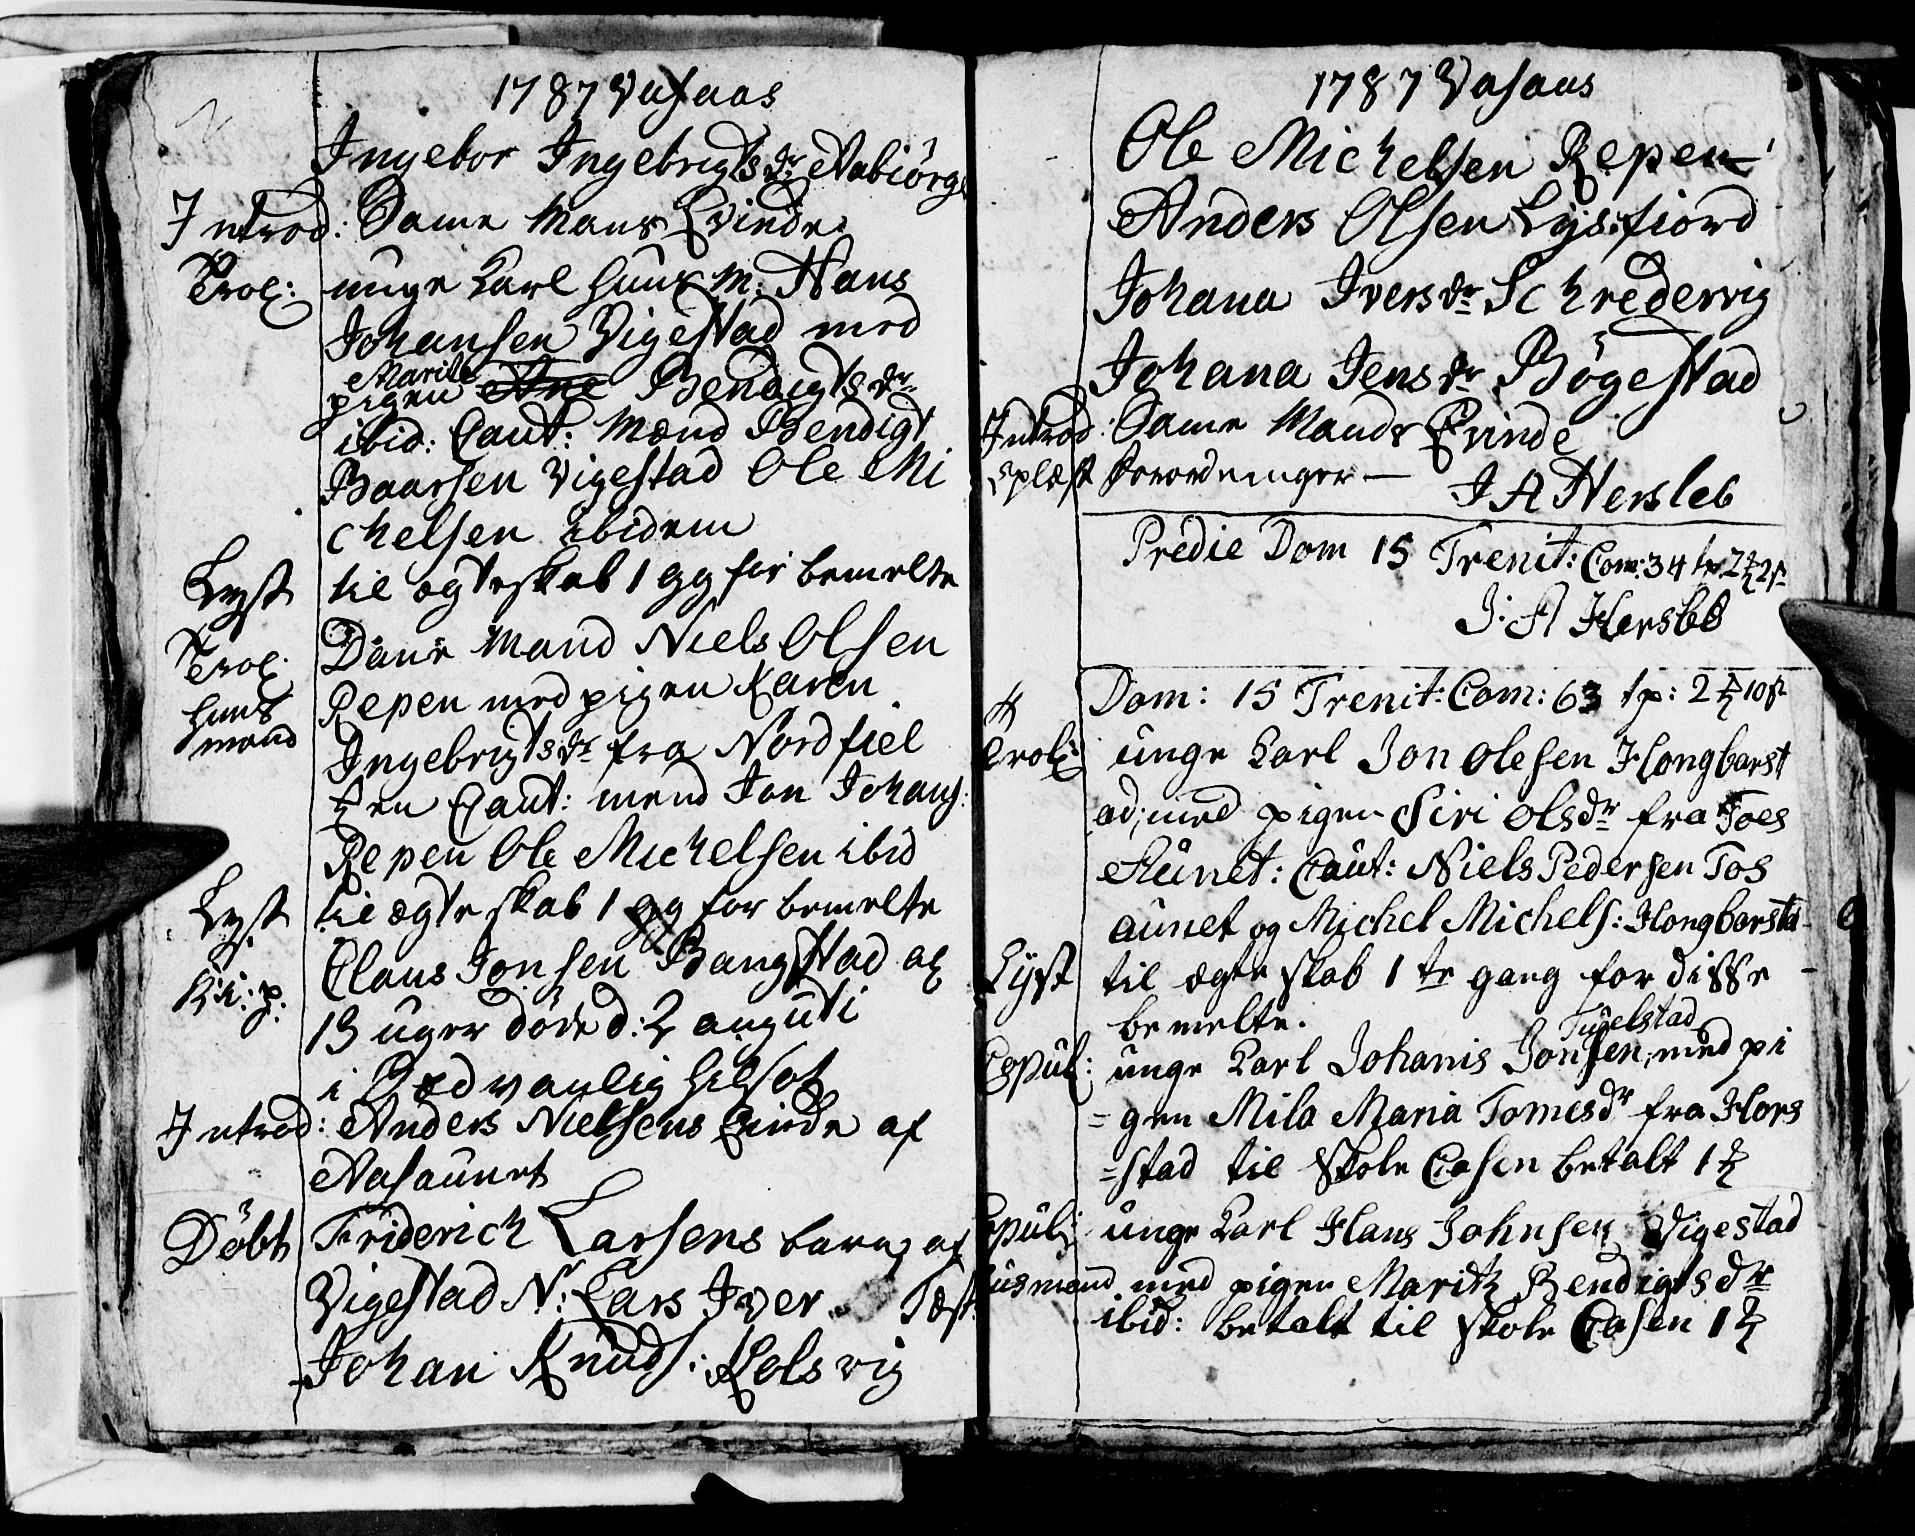 1787 Vasaas
Ingebor Ingebrigtsdr Aabiörge
Introd: Same Mans Qvinde
Trol: unge Karl huus m: Hans
Johansen Vigestad med
Marite
pigen Ane Bendigtsdr
ibid: Caut: Mænd Bendigt
Baarsen Vigestad Ole Mi
chelsen ibidem
Lyst til ægteskab 1 gg for bemelte
Trol: Dane Mand Niels Olsen
huus Repen med pigen Karen
mand Ingebrigtsdr fra Nordfiel
en Caut: mend Jon Johans:
Repen Ole Michelsen ibid
Lyst til ægte skab 1 gg for bemelte
Claus Jonsen Bangstad
13 uger döde d: 2 augusti
i vanlig
Introd: Anders Nielsens Qvinde af
Aasaunet
Döbt Friderich Larsens barn af
Vigestad N: Lars Iver Test:
Johan Knuds: Kolsvig
1787 Vasaas
Ole Michelsen Repen
Anders Olsen Lysfiord
Johana Iversdr Schredervig
Johana Jensdr Bögestad
Introd: Same Mands Qvinde
oplæst forordninger —
J A Hersleb
Predie Dom 15 Trenit: Com: 34 tp 2
J: A Hersleb
Dom: 15 Trenit: Com: 63 tp: 2
Trol: unge Karl Jon Olesen Hongbarst
ad; med pigen Siri Olsdr fra Toes
Aünet: Caut: Niels Pedersen Tos
aunet og Michel Michels: Hongbarsta
Lyst til ægte skab 1 te gang for disse
bemelte.
Tigelstad
Copul: unge Karl Johanis Jonsen, med pi
= gen Mila Maria Tomesdr fra Hors
=stad til Skole Casen betalt 1
opul: unge Karl Hans Johnsen Vigestad
usmand med pigen Marith Bendigtsdr
ibid: betalt til Skole Casen 1